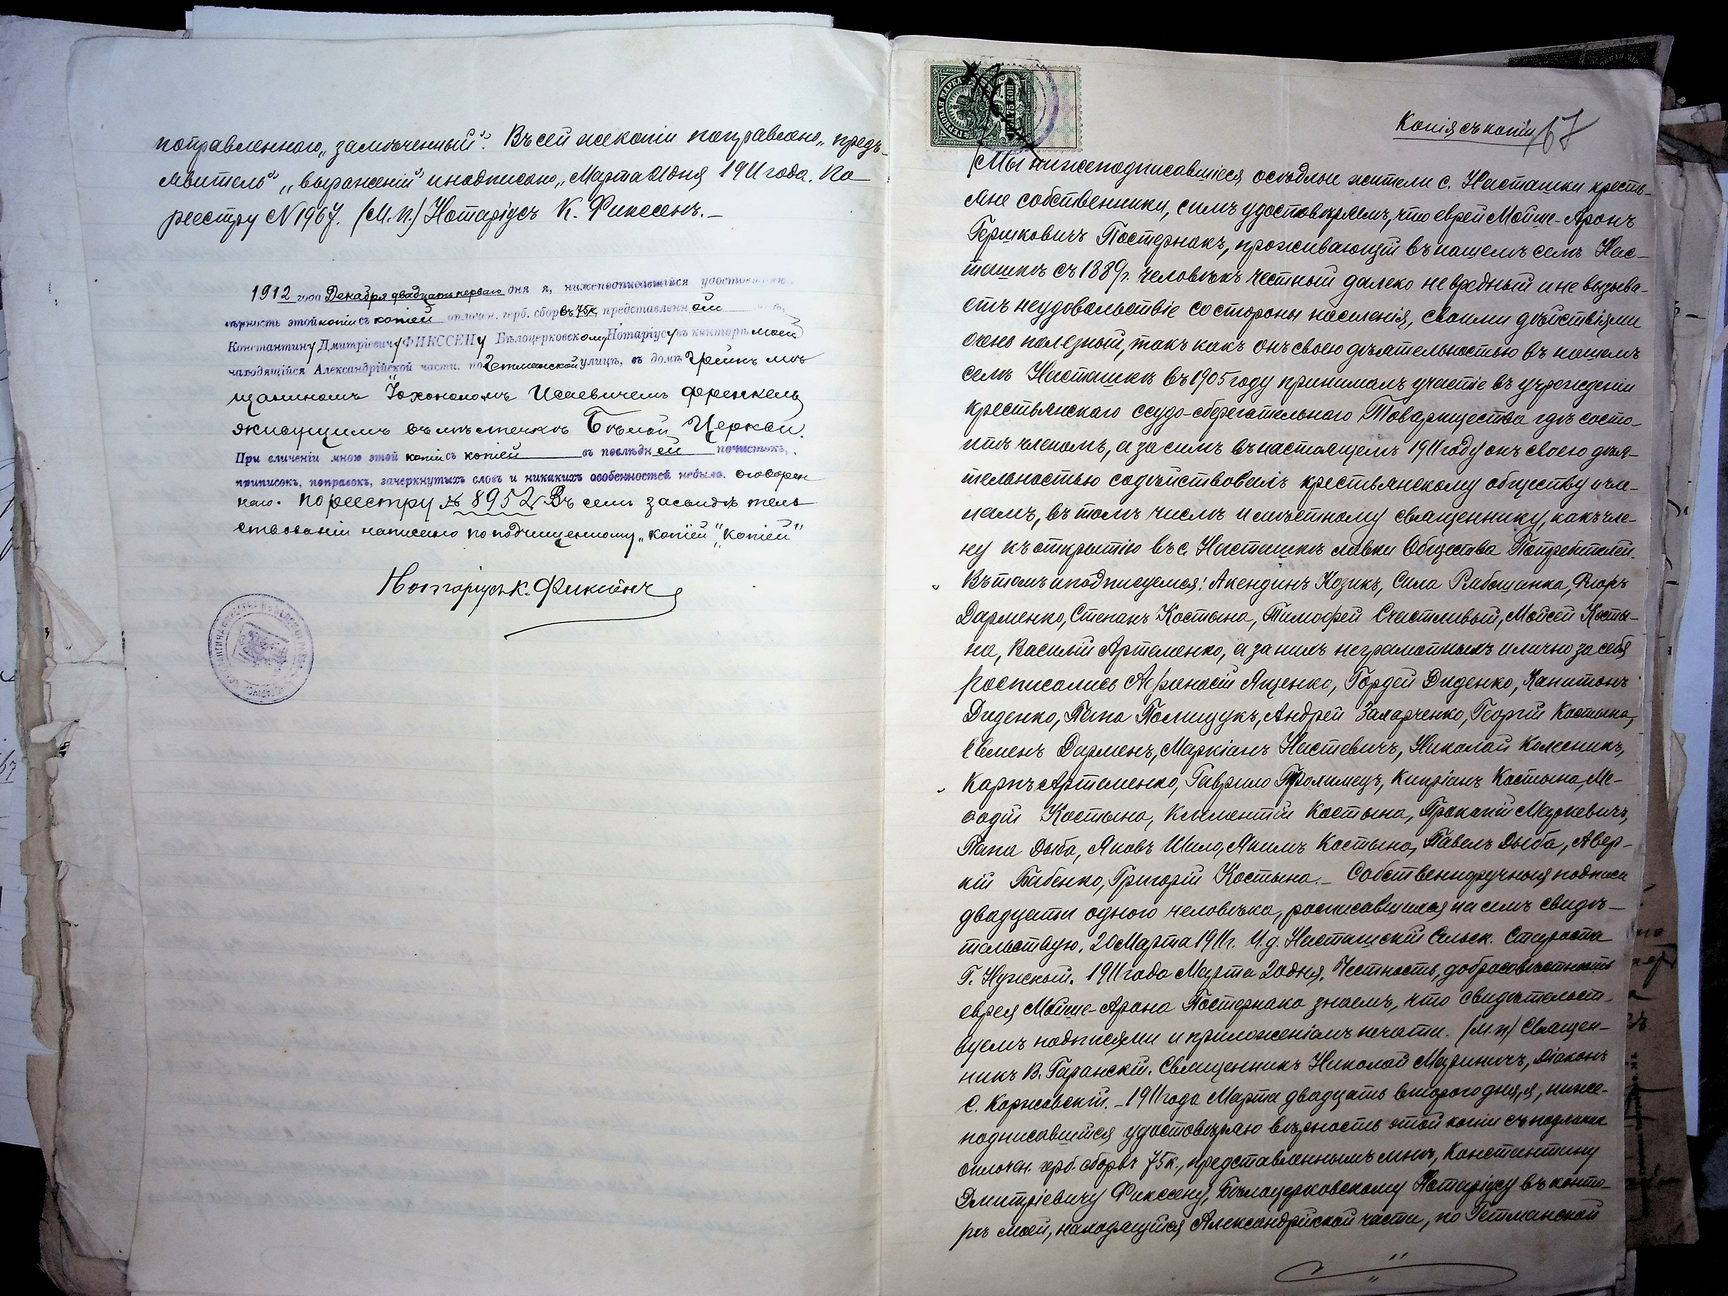 поправленнаго „замѣченный“. Въ сей же копіи поправлено „предъ-
явитель“, „выраженій“ и надписано „Марта дня 1911 года. По
реестру № 1967. (М.п.) Нотаріусъ К. Фиксенъ.—
1912 года Декабря двадцать перваго дня я, нижеподписавшійся удостовѣряю
вѣрность этой копіи съ копіей оплочен. герб. сбор. въ 75 к. представленной
Константину Дмитріевичу ФИКССЕНу Бѣлоцерковскому Нотаріусу въ конторѣ моей
находящейся Александрійской части, по Гетманской улицѣ, въ домѣ Грейпъ мѣ
щаниномъ Іохономъ Исаевичемъ Френкель
живущимъ въ мѣстечкѣ Бѣлой Церкви.
При сличеніи мною этой копіи съ копіей въ послѣдней почистокъ,
приписокъ, поправокъ, зачеркнутыхъ словъ и никакихъ особенностей не было. оговорен
ного. По реестру № 8952. Въ семъ засвидѣтель
ствованіи написано по подчищенному „копіей“ „копіей“
Нотаріусъ К. Фиксенъ
Копія съ копіи 67
Мы нижеподписавшіеся осѣдлые жители с. Насташки кресть-
яне собственники, симъ удостовѣряемъ, что еврей Мойше-Аронъ
Гершковичъ Постернакъ, проживающій въ нашемъ селѣ Нас-
ташкѣ съ 1889 г. человѣкъ честный далеко не вредный и не вызыва-
етъ неудовольствіе со стороны населенія, своими дѣйствіями
очень полезный, такъ какъ онъ своею дѣятельностью въ нашемъ
селѣ Насташкѣ въ 1905 году принималъ участіе въ учрежденіи
крестьянскаго ссудо-сберегательнаго Товарищества гдѣ состо-
итъ членомъ, а за симъ въ настоящемъ 1911 году онъ своею дѣя-
тельностью содѣйствовалъ крестьянскому обществу и чле-
намъ, въ томъ числѣ и мѣстному священнику, какъ чле-
ну къ открытію въ с. Насташкѣ лавки Общества Потребителей
Въ томъ и подписуемся: Акендинъ Козикъ, Сила Рябошапка, Флоръ
Дарменко, Степанъ Костына, Тимофей Счастливый, Мойсей Косты-
на, Василій Артеменко, а за нихъ неграмотныхъ и лично за себя
росписались Афанасій Яценко, Гордей Диденко, Капитонъ
Диденко, Папа Полищукъ, Андрей Захарченко, Георгій Костына,
Семенъ Дарменъ, Маркіанъ Настевичъ, Николай Колесникъ,
Карпъ Артеменко, Гаврило Проминецъ, Кипріанъ Костына, Ме-
фодій Костына, Климентій Костына, Прокопій Маркевичъ,
Папа Дыба, Яковъ Шило, Якимъ Костына, Павелъ Дыба, Авер-
кій Бабенко, Григорій Костына.— Собственноручныя подписи
двадцати одного человѣка, росписавшихся на семъ свидѣ-
тельствую. 20 Марта 1911 г. И.д. Насташскій Сельск. Староста
Г. Нужный. 1911 года Марта 20 дня. Честность, добросовѣстность
еврея Мойше-Арона Постернака знаемъ, что свидѣтельст-
вуемъ подписями и приложеніемъ печати. (М.п.) Священ-
никъ В. Гаранскій. Священникъ Николай Мариничъ, Діаконъ
С. Каржавскій.—1911 года Марта двадцать второго дня, я, ниже-
подписавшійся удостовѣряю вѣрность этой копіи съ подлиннк
оплочен. герб. сборѣ 75 к., представленнымъ мнѣ, Константину
Дмитріевичу Фиксену, Бѣлоцерковскому Нотаріусу въ конто-
рѣ моей, находящейся Александрійской части, по Гетманской